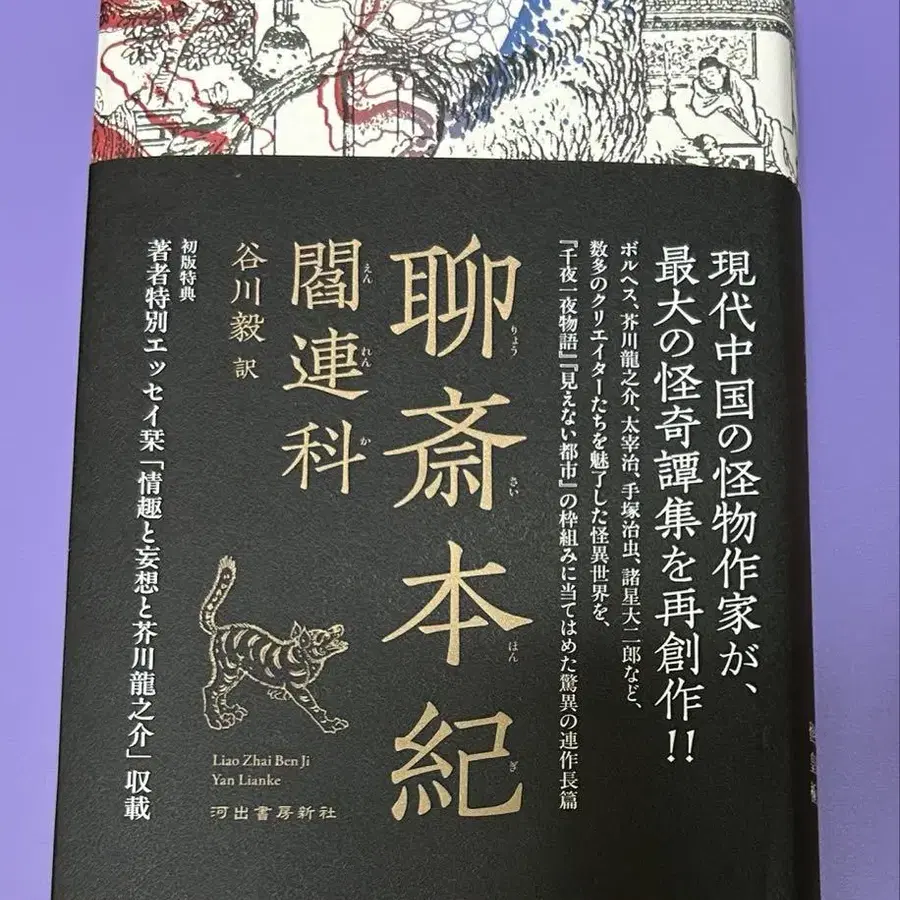 現代中国の怪物作家が、
最大の怪奇譚集を再創作!!
ボルヘス、芥川龍之介、太宰治、手塚治虫、諸星大二郎など、
数多のクリエイターたちを魅了した怪異世界を、
『千夜一夜物語』『見えない都市』の枠組みに当てはめた驚異の連作長篇
聊斎本紀
りょうさいほんぎ
閻連科
えんれんか
谷川毅 訳
初版特典
著者特別エッセイ栞「情趣と妄想と芥川龍之介」収載
Liao Zhai Ben Ji
Yan Lianke
河出書房新社